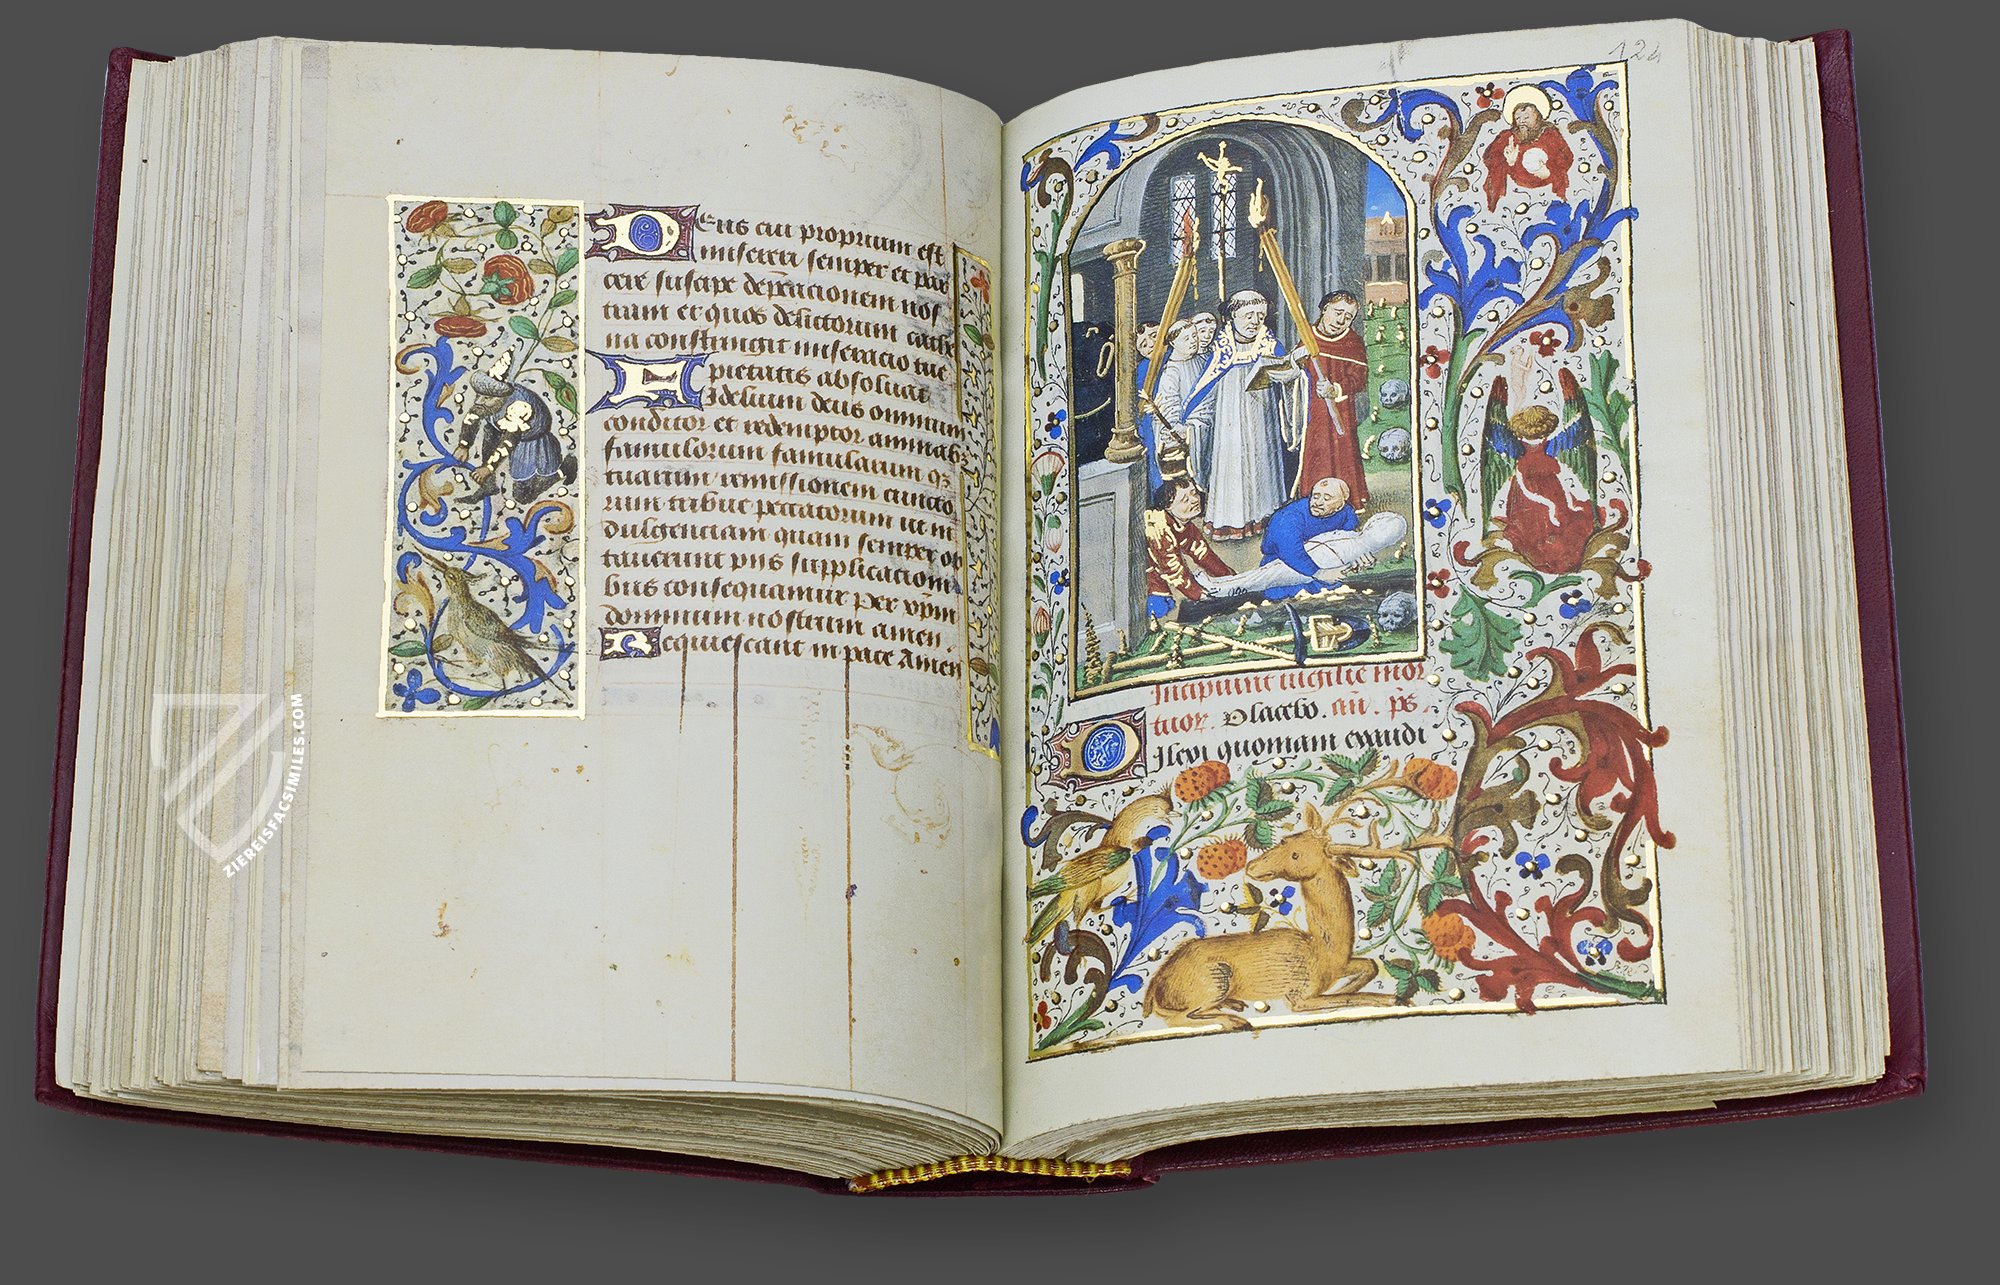 Deus cui proprium est
misereri semper et par
cere suscipe dep̄cacionem nos
tram et quos delictorum cathe
na constringit miseracio tue
pietatis absoluat
Fidelium deus omnium
conditor et redemptor animabꝫ
famulorum famularum qꝫ
tuarum remissionem cuncto
rum tribue peccatorum ut in
dulgenciam quam semper op
tauerunt piis supplicacioni
bus consequamur Per xp̄m
dominum nostrum amen.
Requiescant in pace Amen
ZIEREISFACSIMILES.COM
124
Incipiunt uigilie mor
tuor. Placebo. añ. p̄s.
Dilexi quoniam exaudi